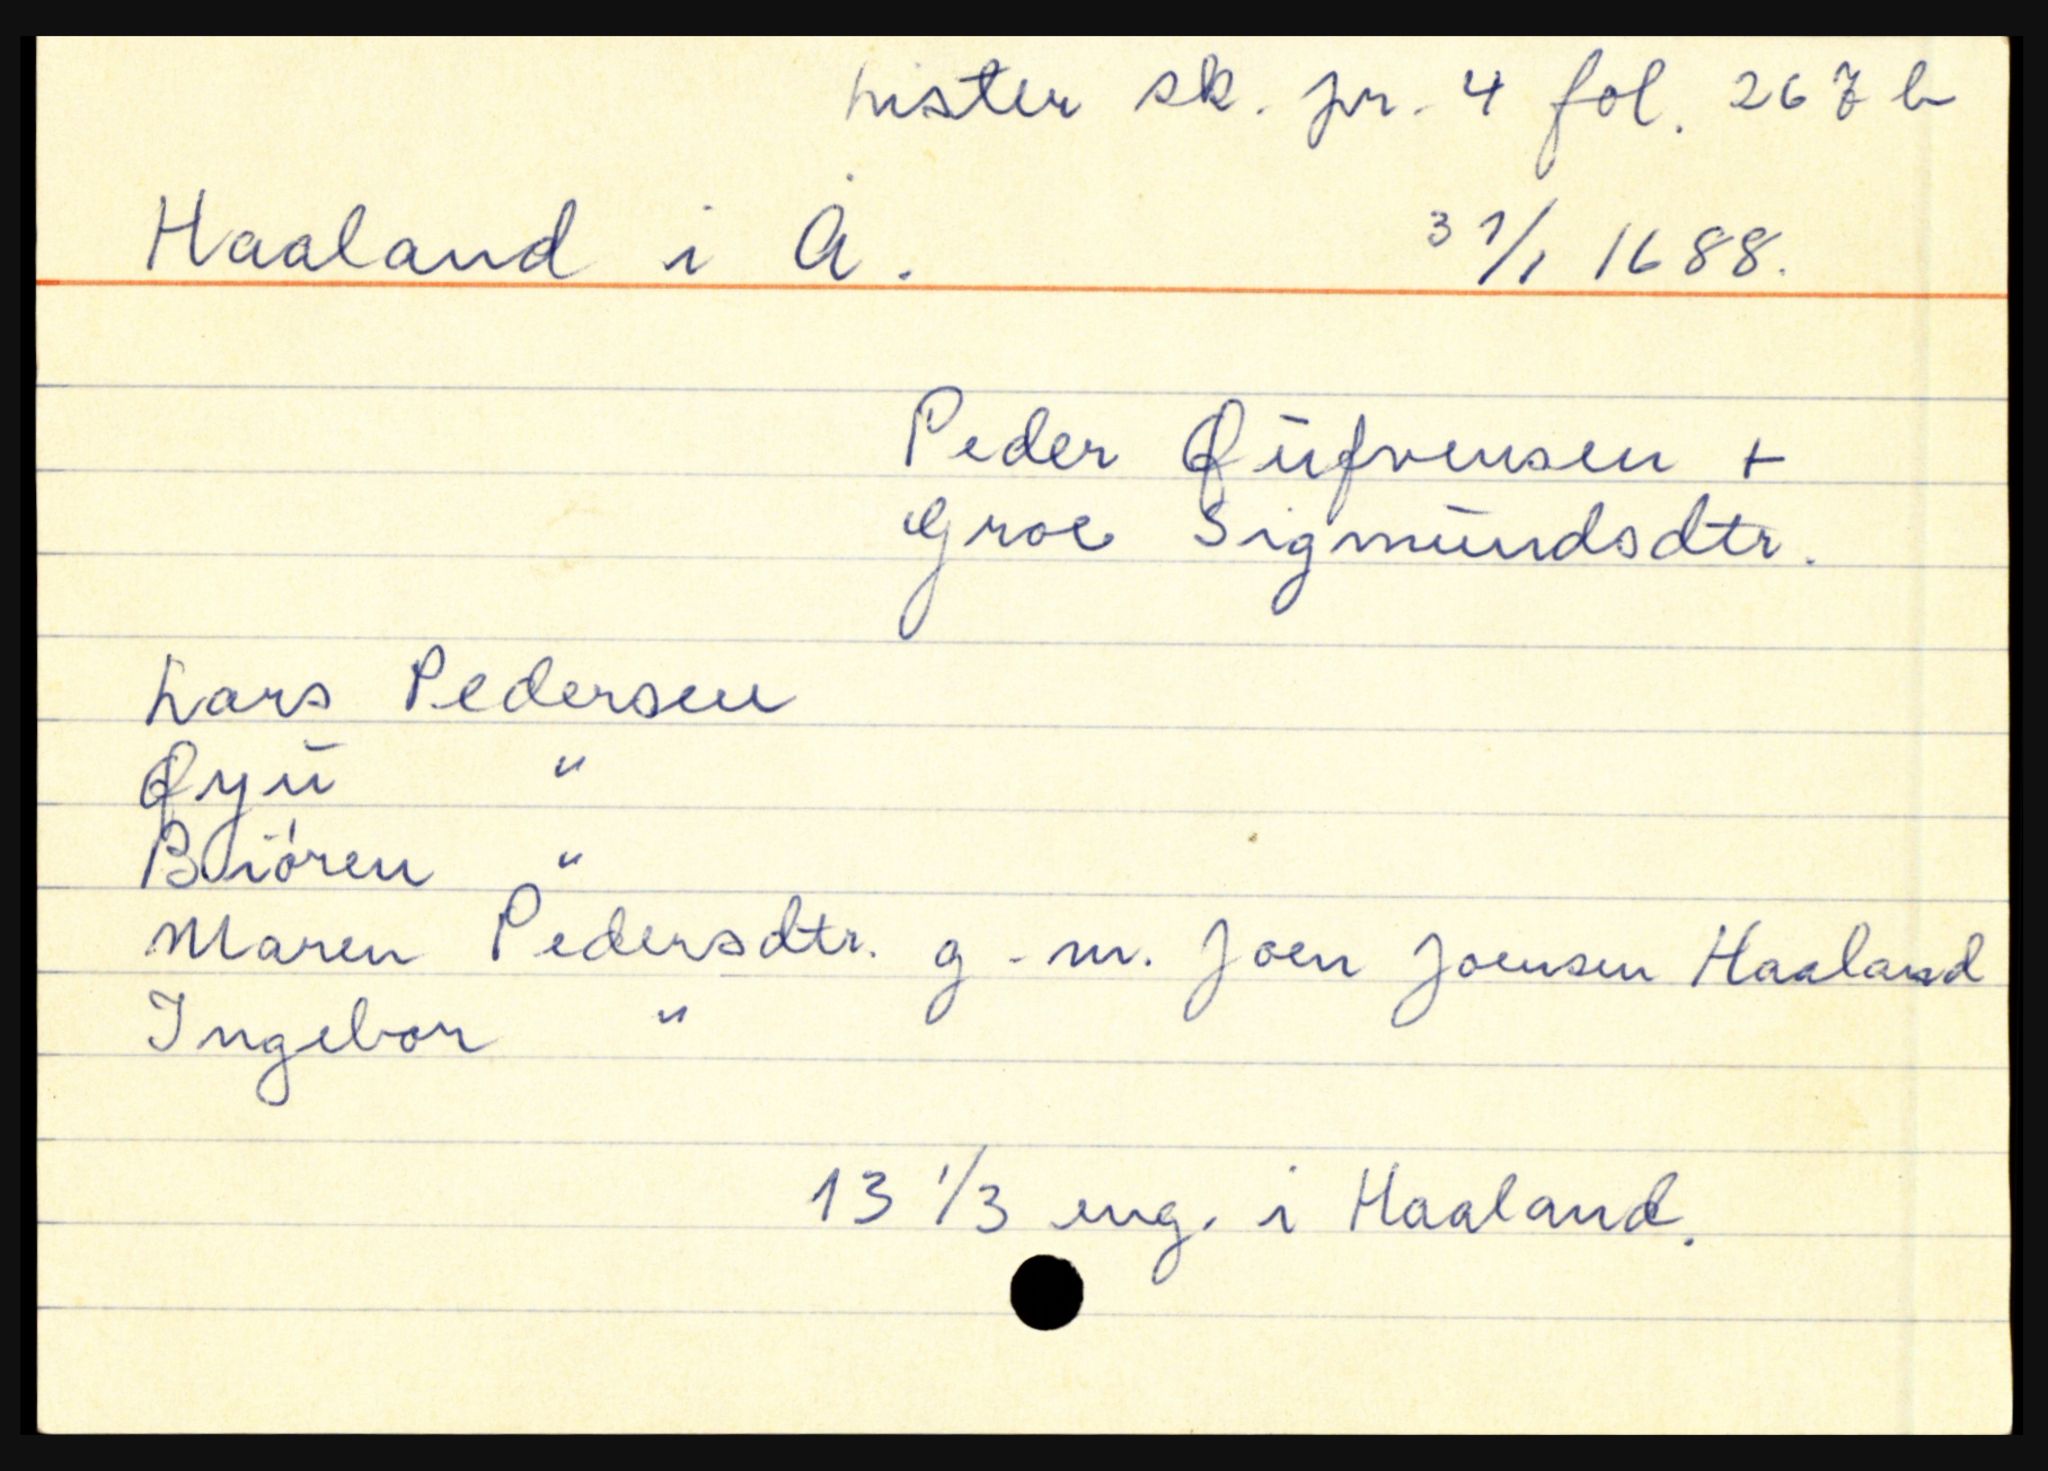 Lister sk. pr. 4 fol. 267 b
Haaland i Å. 31/1 1688.
Peder Qūfvensen +
Groe Sigmūndsdtr.
Lars Pedersen
Qyū "
Biören "
Maren Pedersdtr. g. m. Joen Joensen Haaland
Ingebor "
13 1/3 eng. i Haaland.